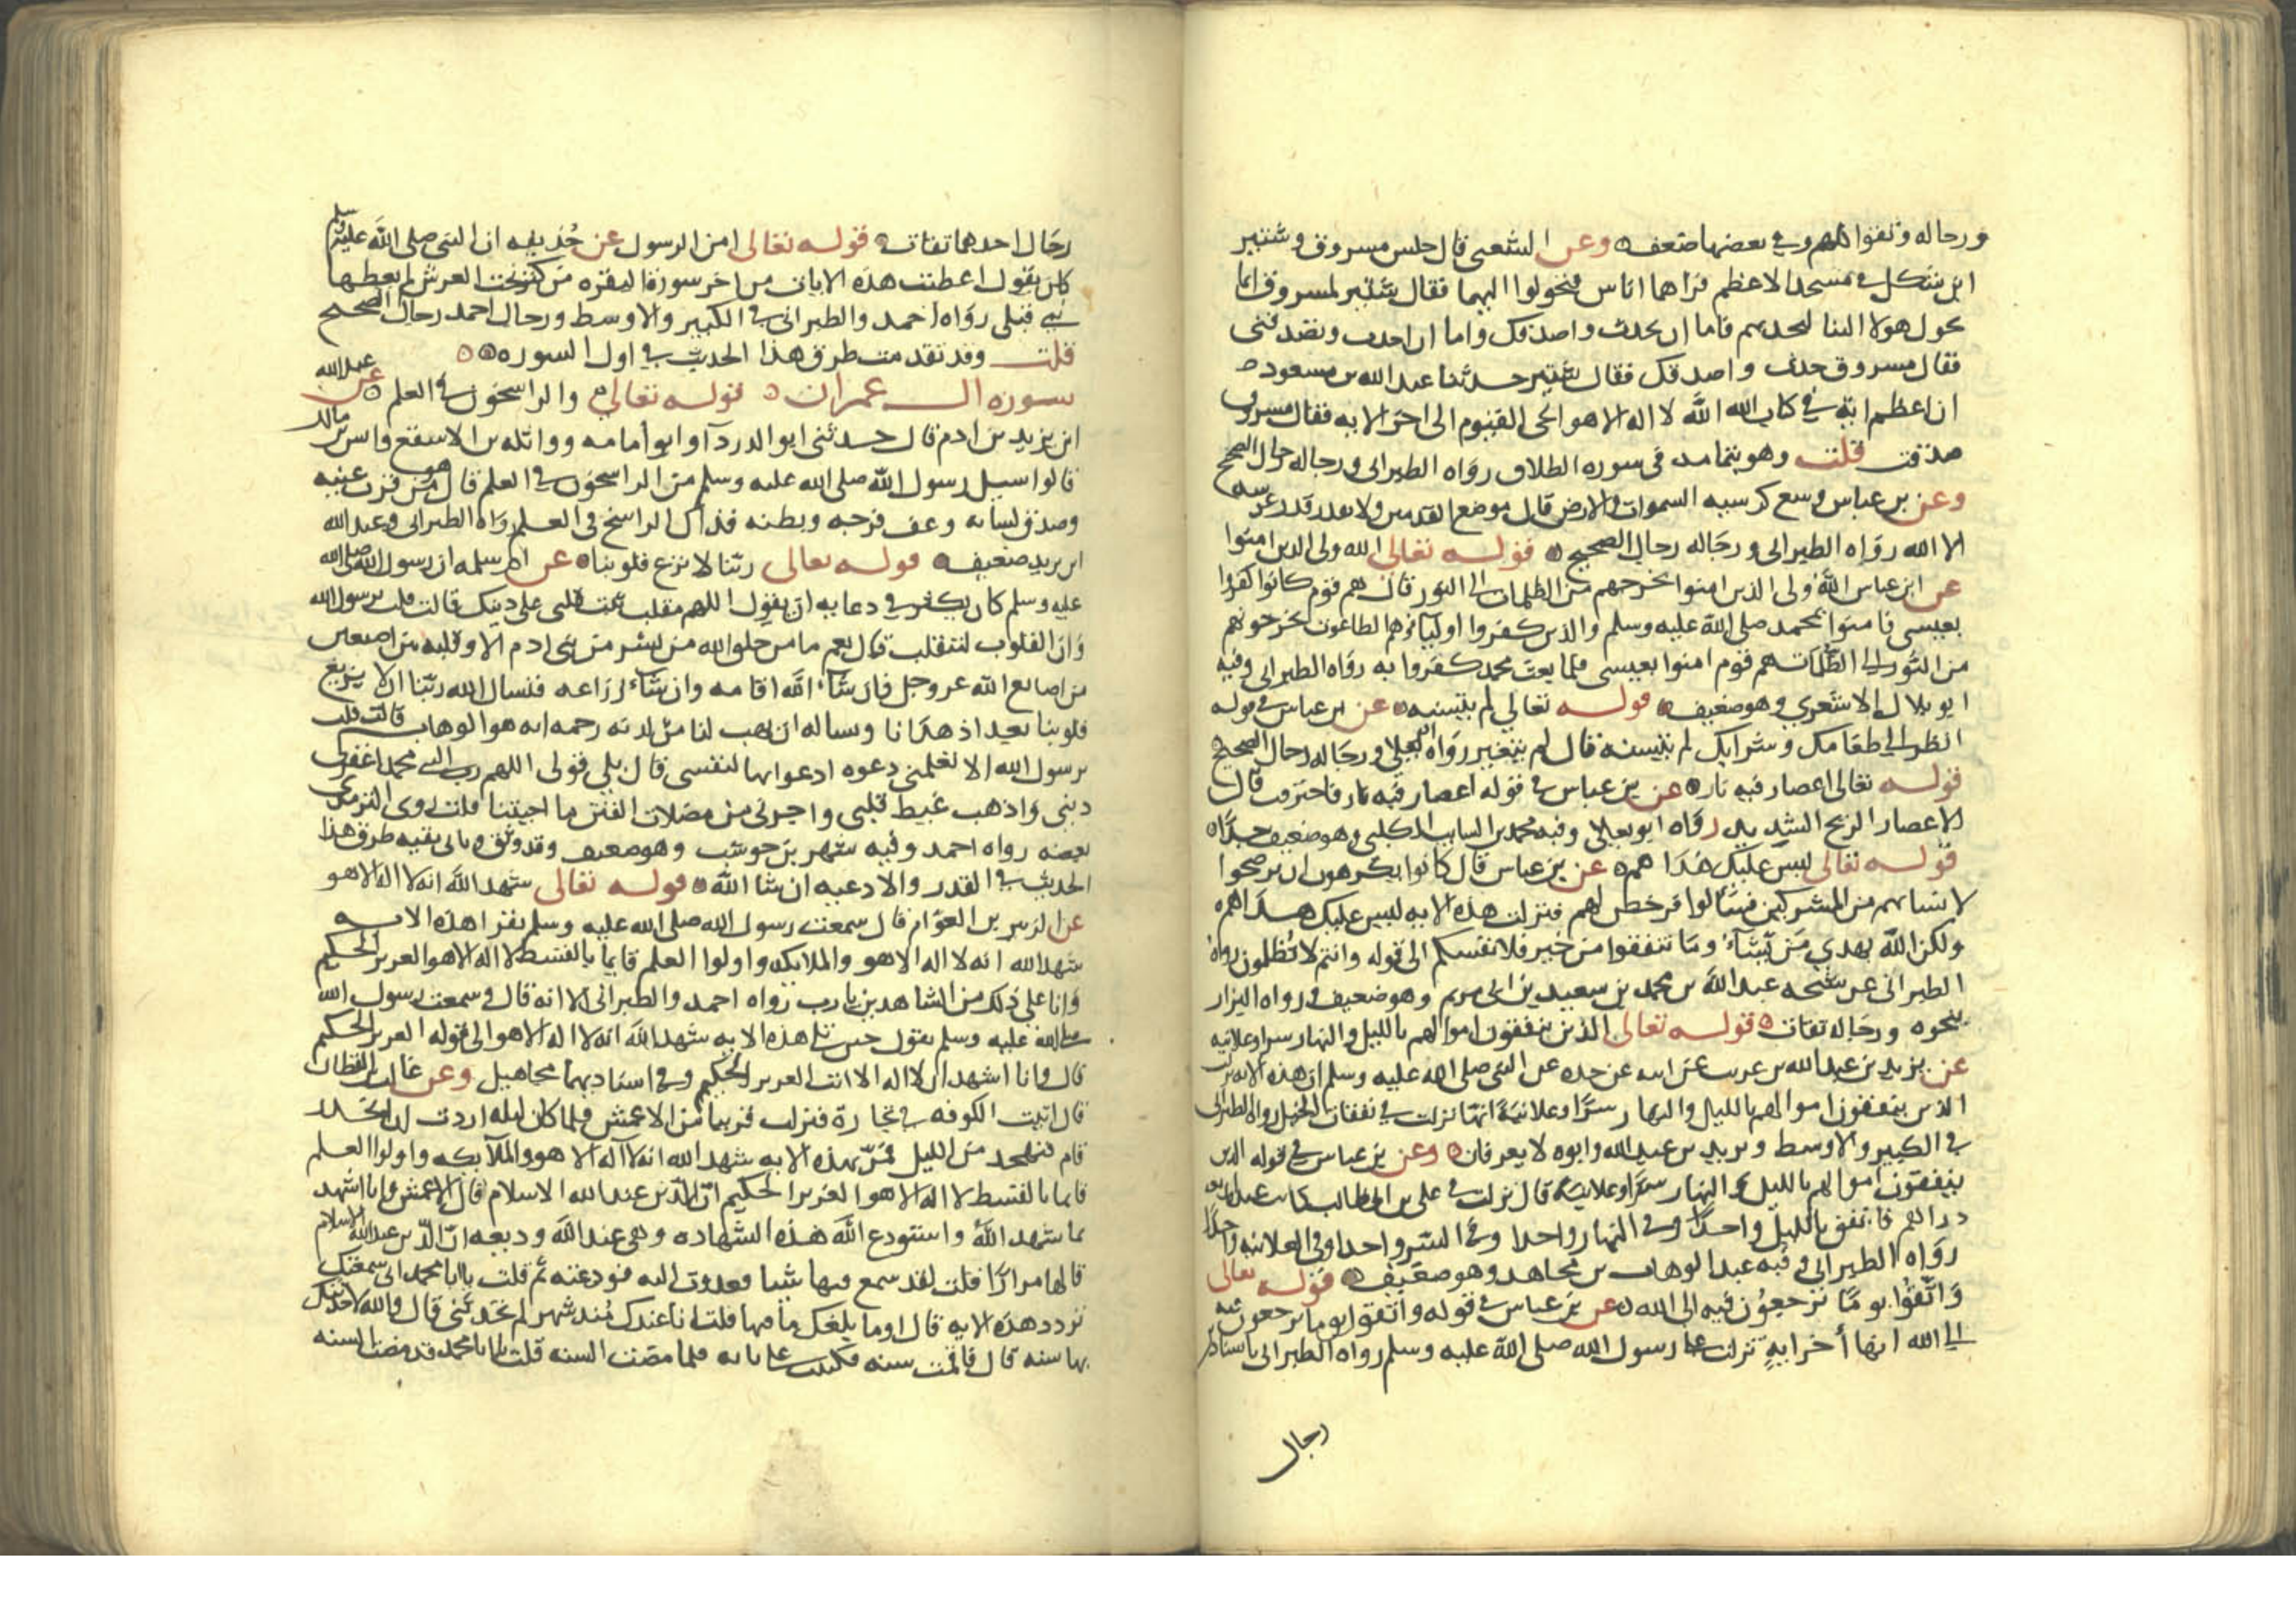 ورجاله وثقوا كلهم وفي بعضها ضعف ه وعن الشعبي قال جلس مسروق وشتير
ابن شكل في مسجد الاعظم فراهما اناس فتحولوا اليهما فقال شتير لمسروق انما
تحول هولا الينا لنحدثهم فاما ان تحدث واصدقك واما ان احدث وتصدقني
فقال مسروق حدث واصدقك فقال شتير حدثنا عبد الله بن مسعود
ان اعظم اية في كتاب الله الله لا اله الا هو الحي القيوم الى اخر الاية فقال مسروق
صدقت قلت وهو بتمامه في سورة الطلاق رواه الطبراني ورجاله رجال الصحيح
وعن بن عباس وسع كرسيه السموات والارض قال موضع القدمين ولا يقدر قدر عرشه
الا الله رواه الطبراني ورجاله رجال الصحيح ه قوله تعالى الله ولي الذين امنوا
عن ابن عباس الله ولي الذين امنوا يخرجهم من الظلمات الى النور قال هم قوم كانوا كفروا
بعيسى فامنوا بمحمد صلى الله عليه وسلم والذين كفروا اولياؤهم الطاغوت يخرجونهم
من النور الى الظلمات هم قوم امنوا بعيسى فلما بعث محمد كفروا به رواه الطبراني وفيه
ابو بلال الاشعري وهو ضعيف ه قوله تعالى لم يتسنه ه عن ابن عباس في قوله
انظر الى طعامك وشرابك لم يتسنه قال لم يتغير رواه ابو يعلى ورجاله رجال الصحيح
قوله تعالى اعصار فيه نار ه عن بن عباس في قوله اعصار فيه نار فاحترقت قال
الاعصار الريح الشديد رواه ابو يعلى وفيه محمد بن السايب الكلبي وهو ضعيف جدا ه
قوله تعالى ليس عليك هداهم ه عن بن عباس قال كانوا يكرهون ان يرضخوا
لانسابهم من المشركين فسالوا فرخص لهم فنزلت هذه الاية ليس عليك هداهم
ولكن الله يهدي من يشاء وما تنفقوا من خير فلانفسكم الى قوله وانتم لا تظلمون رواه
الطبراني عن شيخه عبد الله بن محمد بن سعيد بن ابي مريم وهو ضعيف ورواه البزار
بنحوه ورجاله ثقات ه قوله تعالى الذين ينفقون اموالهم بالليل والنهار سرا وعلانية
عن يزيد بن عبد الله بن عريب عن ابيه عن جده عن النبي صلى الله عليه وسلم ان هذه الاية نزلت
الذين ينفقون اموالهم بالليل والنهار سرا وعلانية انها نزلت في نفقات الخيل رواه الطبراني
في الكبير والاوسط ويزيد بن عبد الله وابوه لا يعرفان ه وعن بن عباس في قوله الذين
ينفقون اموالهم بالليل والنهار سرا وعلانية قال نزلت في علي بن ابي طالب كانت عنده اربعة
دراهم فانفق بالليل واحدا وفي النهار واحدا وفي السر واحدا وفي العلانية واحدا
رواه الطبراني وفيه عبد الوهاب بن مجاهد وهو ضعيف ه قوله تعالى
واتقوا يوما ترجعون فيه الى الله ه عن بن عباس في قوله واتقوا يوما ترجعون فيه
الى الله انها أخر اية نزلت على رسول الله صلى الله عليه وسلم رواه الطبراني باسنادين
رجال
رجال احدهما ثقات ه قوله تعالى امن الرسول عن حذيفه ان النبي صلى الله عليه وسلم
كان يقول اعطيت هذه الايات من اخر سورة البقره من كنز تحت العرش لم يعطها
نبي قبلي رواه احمد والطبراني في الكبير والاوسط ورجال احمد رجال الصحيح
قلت وقد تقدمت طرق هذا الحديث في اول السوره ه ه
سورة ال عمران ه قوله تعالى والراسخون في العلم ه عن عبد الله
ابن يزيد بن ادم قال حدثني ابو الدردآ وابو أمامه وواثله بن الاسقع وانس بن مالك
قالوا سيل رسول الله صلى الله عليه وسلم من الراسخون في العلم قال هو من قرت عينه
وصدق لسانه وعف فرجه وبطنه فذاك الراسخ في العلم رواه الطبراني وعبد الله
ابن يزيد ضعيف ه قوله تعالى ربنا لا تزغ قلوبنا ه عن ام سلمه ان رسول الله صلى الله
عليه وسلم كان يكثر في دعايه ان يقول اللهم مقلب ثبت قلبي على دينك قالت قلت يرسول الله
وان القلوب لتتقلب قال نعم ما من خلق الله من بشر من بني ادم الا وقلبه بين اصبعين
من اصابع الله عز وجل فان شاء الله اقامه وان شاء ازاغه فنسال الله ربنا ان لا يزيغ
قلوبنا بعد اذ هدانا ونساله ان يهب لنا من لدنه رحمه انه هو الوهاب قالت قلت
يرسول الله الا تعلمني دعوه ادعوا بها لنفسي قال بلى قولي اللهم رب النبي محمد اغفر لي
ذنبي واذهب غيظ قلبي واجرني من مضلات الفتن ما احييتنا قلت روى الترمذي
بعضه رواه احمد وفيه شهر بن حوشب وهو ضعيف وقد وثق وياتي بقيه طرق هذا
الحديث في القدر والادعيه ان شا الله ه قوله تعالى شهد الله انه لا اله الا هو
عن الزبير بن العوام قال سمعت رسول الله صلى الله عليه وسلم يقرا هذه الايه
شهد الله انه لا اله الا هو والملايكه واولوا العلم قايما بالقسط لا اله الا هو العزيز الحكيم
وانا على ذلك من الشاهدين يا رب رواه احمد والطبراني الا انه قال وسمعت رسول الله
صلى الله عليه وسلم يقول حين تلا هذه الايه شهد الله انه لا اله الا هو الى قوله العزيز الحكيم
قال وانا اشهد ان لا اله الا انت العزيز الحكيم وفي اسناديهما مجاهيل وعن غالب القطان
قال اتيت الكوفه في تجارة فنزلت قريبا من الاعمش فلما كان ليله اردت ان انحدر
قام فتهجد من الليل فمر بهذه الايه شهد الله انه لا اله الا هو والملآيكه واولوا العلم
قايما بالقسط لا اله الا هو العزيز الحكيم ان الدين عند الله الاسلام قال الاعمش وانا اشهد
بما شهد الله واستودع الله هذه الشهاده وهي عند الله وديعه ان الدين عند الله الاسلام
قالها مرارا قلت لقد سمع فيها شيا فغدوت اليه فودعته ثم قلت يا ابا محمد اني سمعتك
تردد هذه الايه قال اوما بلغك ما فيها قلت انا عندك منذ شهر لم تحدثني قال والله لا احدثك
بها سنه قال فاقمت سنه فكتبت على بابه فلما مضت السنه قلت يا ابا محمد قد مضت السنه